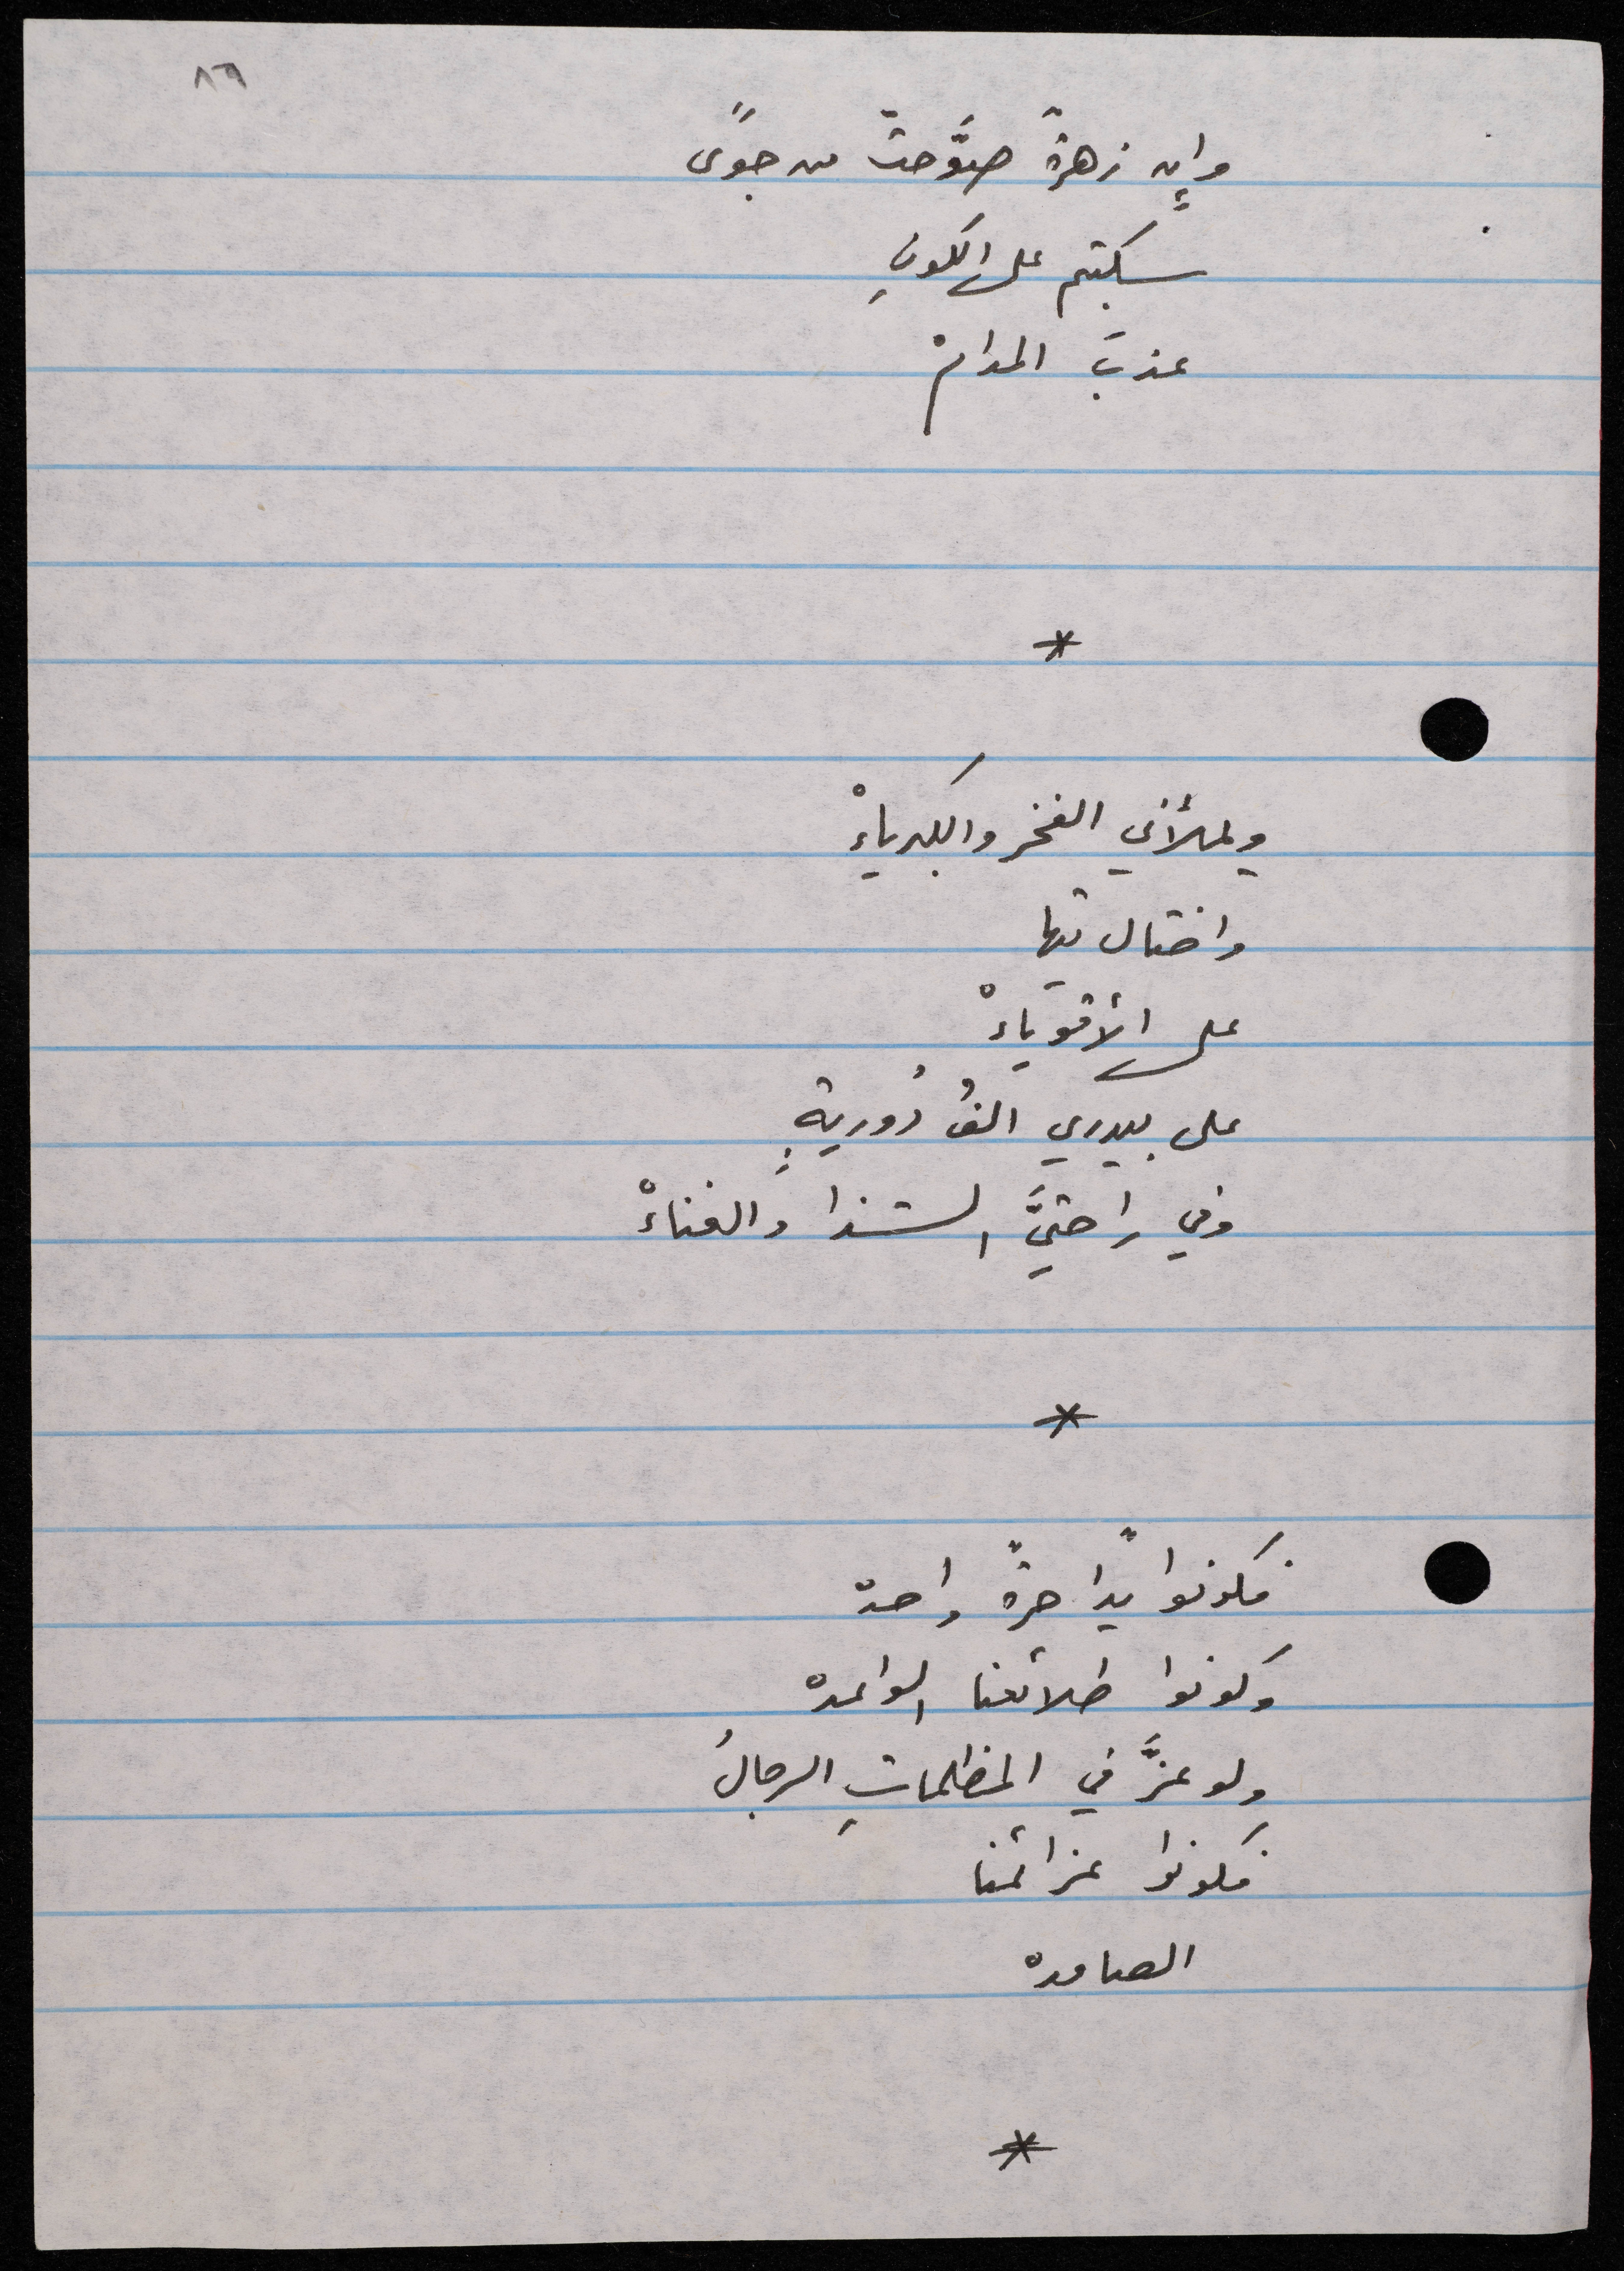 ٨٦
وإن زهرةٌ صوَّحتْ من جوًى
سكبتم على الكونِ
عذبَ المدامْ
*
ويملأني الفخر والكبرياءْ
واختال تيها
على الأقوياءْ
على بيدري الفُ دُوريةٍ
وفي راحتيَّ الشذا والغناءْ
*
فكونوا يداً حرةً واحده
وكونوا طلائعنا الواعده
ولو عزَّ في المظلماتِ الرجالُ
فكونوا عزائمنا
الصامده
*